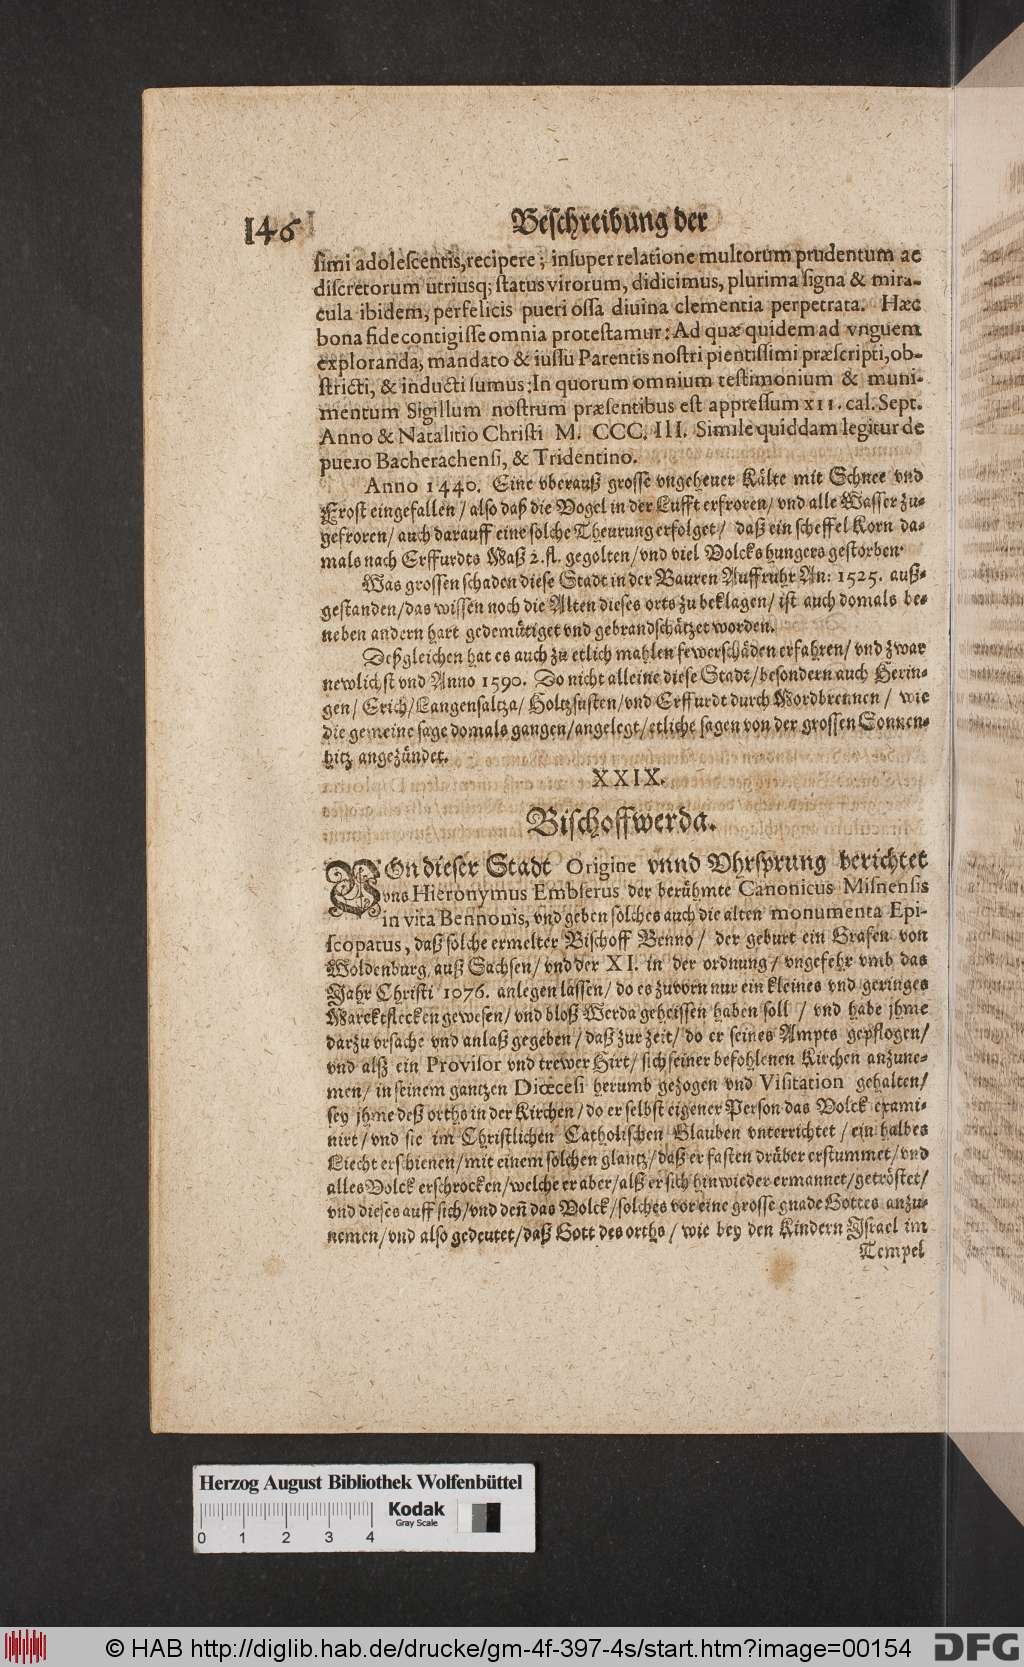 146
Beschreibung der
simi adolescentis, recipere; insuper relatione multorum prudentum ac
discretorum utriusq; status virorum, didicimus, plurima signa & mira-
cula ibidem, perfelicis pueri ossa diuina clementia perpetrata. Hæc
bona fide contigisse omnia protestamur: Ad quæ quidem ad vnguem
exploranda, mandato & iussu Parentis nostri pientissimi præscripti, ob-
stricti, & inducti sumus: In quorum omnium testimonium & muni-
mentum Sigillum nostrum præsentibus est appressum XII. cal. Sept.
Anno & Natalitio Christi M. CCC. III. Simile quiddam legitur de
puero Bacherachensi, & Tridentino.
Anno 1440. Eine vberauß grosse vngeheuer Kälte mit Schnee vnd
Frost eingefallen / also daß die Vogel in der Lufft erfroren / vnd alle Wasser zu-
gefroren / auch darauff eine solche Theurung erfolget / daß ein scheffel Korn da-
mals nach Erffurdts Maß 2. fl. gegolten / vnd viel Volcks hungers gestorben.
Was grossen schaden diese Stadt in der Bauren Auffruhr An: 1525. auß-
gestanden / das wissen noch die Alten dieses orts zu beklagen / ist auch domals be-
neben andern hart gedemütiget vnd gebrandschätzet worden.
Deßgleichen hat es auch zu etlich mahlen fewerschäden erfahren / vnd zwar
newlichst vnd Anno 1590. Do nicht alleine diese Stadt / besondern auch Herin-
gen / Erich / Langensaltza / Holtzsusten / vnd Erffurdt durch Mordbrennen / wie
die gemeine sage domals gangen / angelegt / etliche sagen von der grossen Sonnen-
hitz angezündet.
XXIX.
Bischoffwerda.
VOn dieser Stadt Origine vnnd Vhrsprung berichtet
vns Hieronymus Emblerus der berühmte Canonicus Misnensis
in vita Bennonis, vnd geben solches auch die alten monumenta Epi-
scopatus, daß solche ermelter Bischoff Benno / der geburt ein Grafen von
Woldenburg auß Sachsen / vnd der XI. in der ordnung / vngefehr vmb das
Jahr Christi 1076. anlegen lassen / do es zuvorn nur ein kleines vnd geringes
Marcktflecken gewesen / vnd bloß Werda geheissen haben soll / vnd habe jhme
darzu vrsache vnd anlaß gegeben / daß zur zeit / do er seines Ampts gepflogen /
vnd alß ein Provisor vnd trewer Hirt / sich seiner befohlenen Kirchen anzune-
men / in seinem gantzen Diœcesi herumb gezogen vnd Visitation gehalten /
sey jhme deß orths in der Kirchen / do er selbst eigener Person das Volck exami-
nirt / vnd sie im Christlichen Catholischen Glauben vnterrichtet / ein halbes
Liecht erschienen / mit einem solchen glantz / daß er fasten drüber erstummet / vnd
alles Volck erschrocken / welche er aber / alß er sich hinwieder ermannet / getröstet /
vnd dieses auff sich / vnd den̄ das Volck / solches vor eine grosse gnade Gottes anzu-
nemen / vnd also gedeutet / daß Gott des orths / wie bey den Kindern Israel im
Tempel
Herzog August Bibliothek Wolfenbüttel
Kodak
Gray Scale
0 1 2 3 4
© HAB http://diglib.hab.de/drucke/gm-4f-397-4s/start.htm?image=00154
DFG